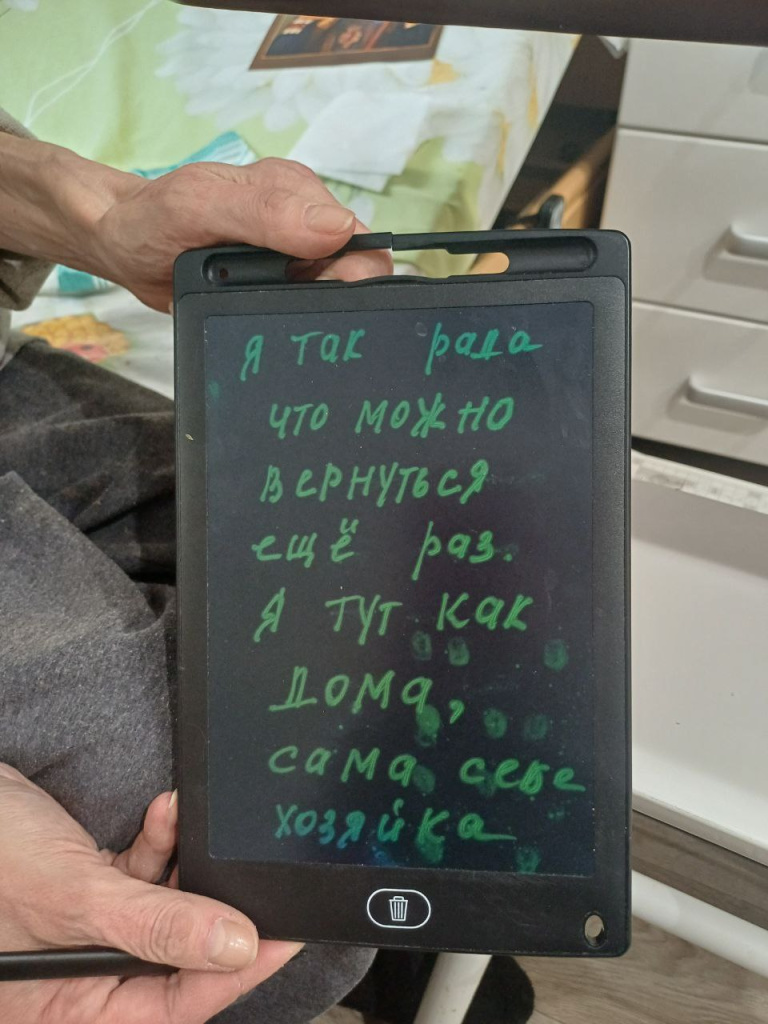 Я так рада
что можно
вернуться
ещё раз.
Я тут как
дома,
сама себе
хозяйка